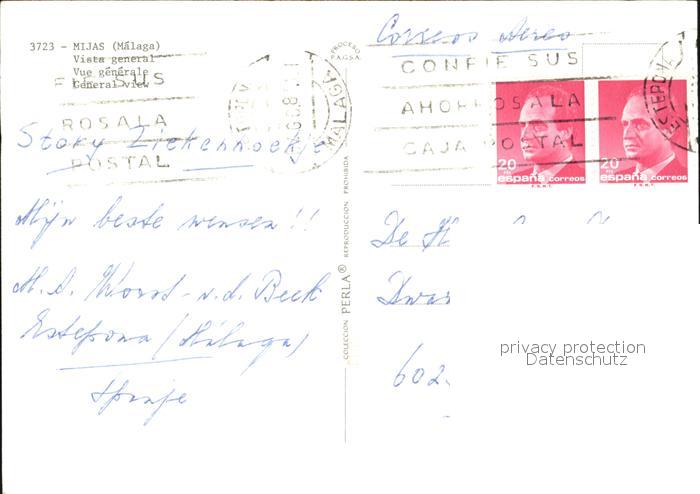 3723 - MIJAS (Málaga)
Vista general
Vue générale
General view
PROCESO
FAGSA
Correos Aereo
CONFIE SUS
AHORROS A LA
CAJA POSTAL
ROSALA
POSTAL
MALAGA
ESTEPONA
20
PTS
españa correos
F.N.M.T.
20
PTS
españa correos
F.N.M.T.
Story Ziekenhoekje
Mijn beste wensen!!
M. A. v.d. Beek
Estepona (Málaga)
Spanje
COLECCION PERLA® REPRODUCCION PROHIBIDA
De H
Dwar
602
privacy protection
Datenschutz